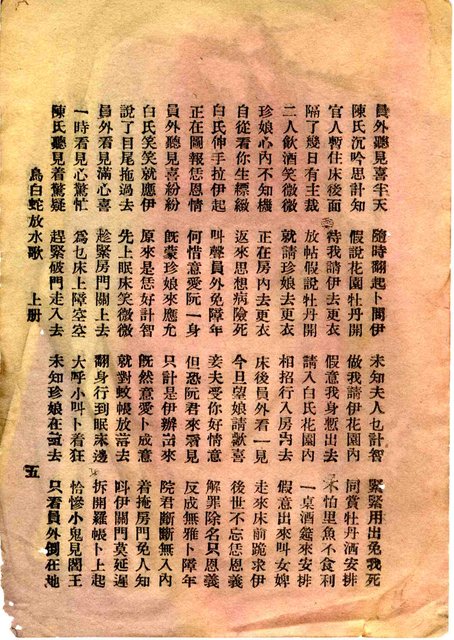 員外聽見喜半天 隨時翻起卜問伊 未知夫人乜計智 緊緊用出免我死
陳氏沉吟思計知 假說花園牡丹開 做我請伊花園內 同賞牡丹酒安排
官人暫住床後面 待我請伊去更衣 假意我身暫出去 不怕里魚不食利
隔了幾日有主裁 放帖假說牡丹開 請入白氏花園內 一桌酒筵來安排
二人飲酒笑微微 就請珍娘去更衣 相招行入房內去 假意出來叫女婢
珍娘心內不知機 正在房內去更衣 床後員外看一見 走來床前跪求伊
自從看你生標緻 返來思想病險死 今旦望娘請歡喜 後世不忘恁恩義
白氏伸手拉伊起 叫聲員外免障年 妾夫受你好情意 解罪除名只恩義
正在圖報恁恩情 何惜意愛阮一身 但恐阮君來看見 反成無雅卜障年
員外聽見喜粉粉 既蒙珍娘來應允 只計是伊辦出來 院君斷斷無入內
白氏笑笑就應伊 原來是恁好計智 既然意愛卜成意 着掩房門免人知
說了目尾拖過去 先上眠床笑微微 就對蚊帳放落去 叫伊關門莫延遲
員外看見滿心喜 趁緊房門關上去 翻身行到眠床邊 拆開羅帳卜上起
一時看見心驚忙 為乜床上障空空 大呼小叫卜着狂 恰慘小鬼見閻王
陳氏聽見着驚疑 趕緊破門走入去 未知珍娘在去 只看員外倒在地
烏白蛇放水歌 上册 五